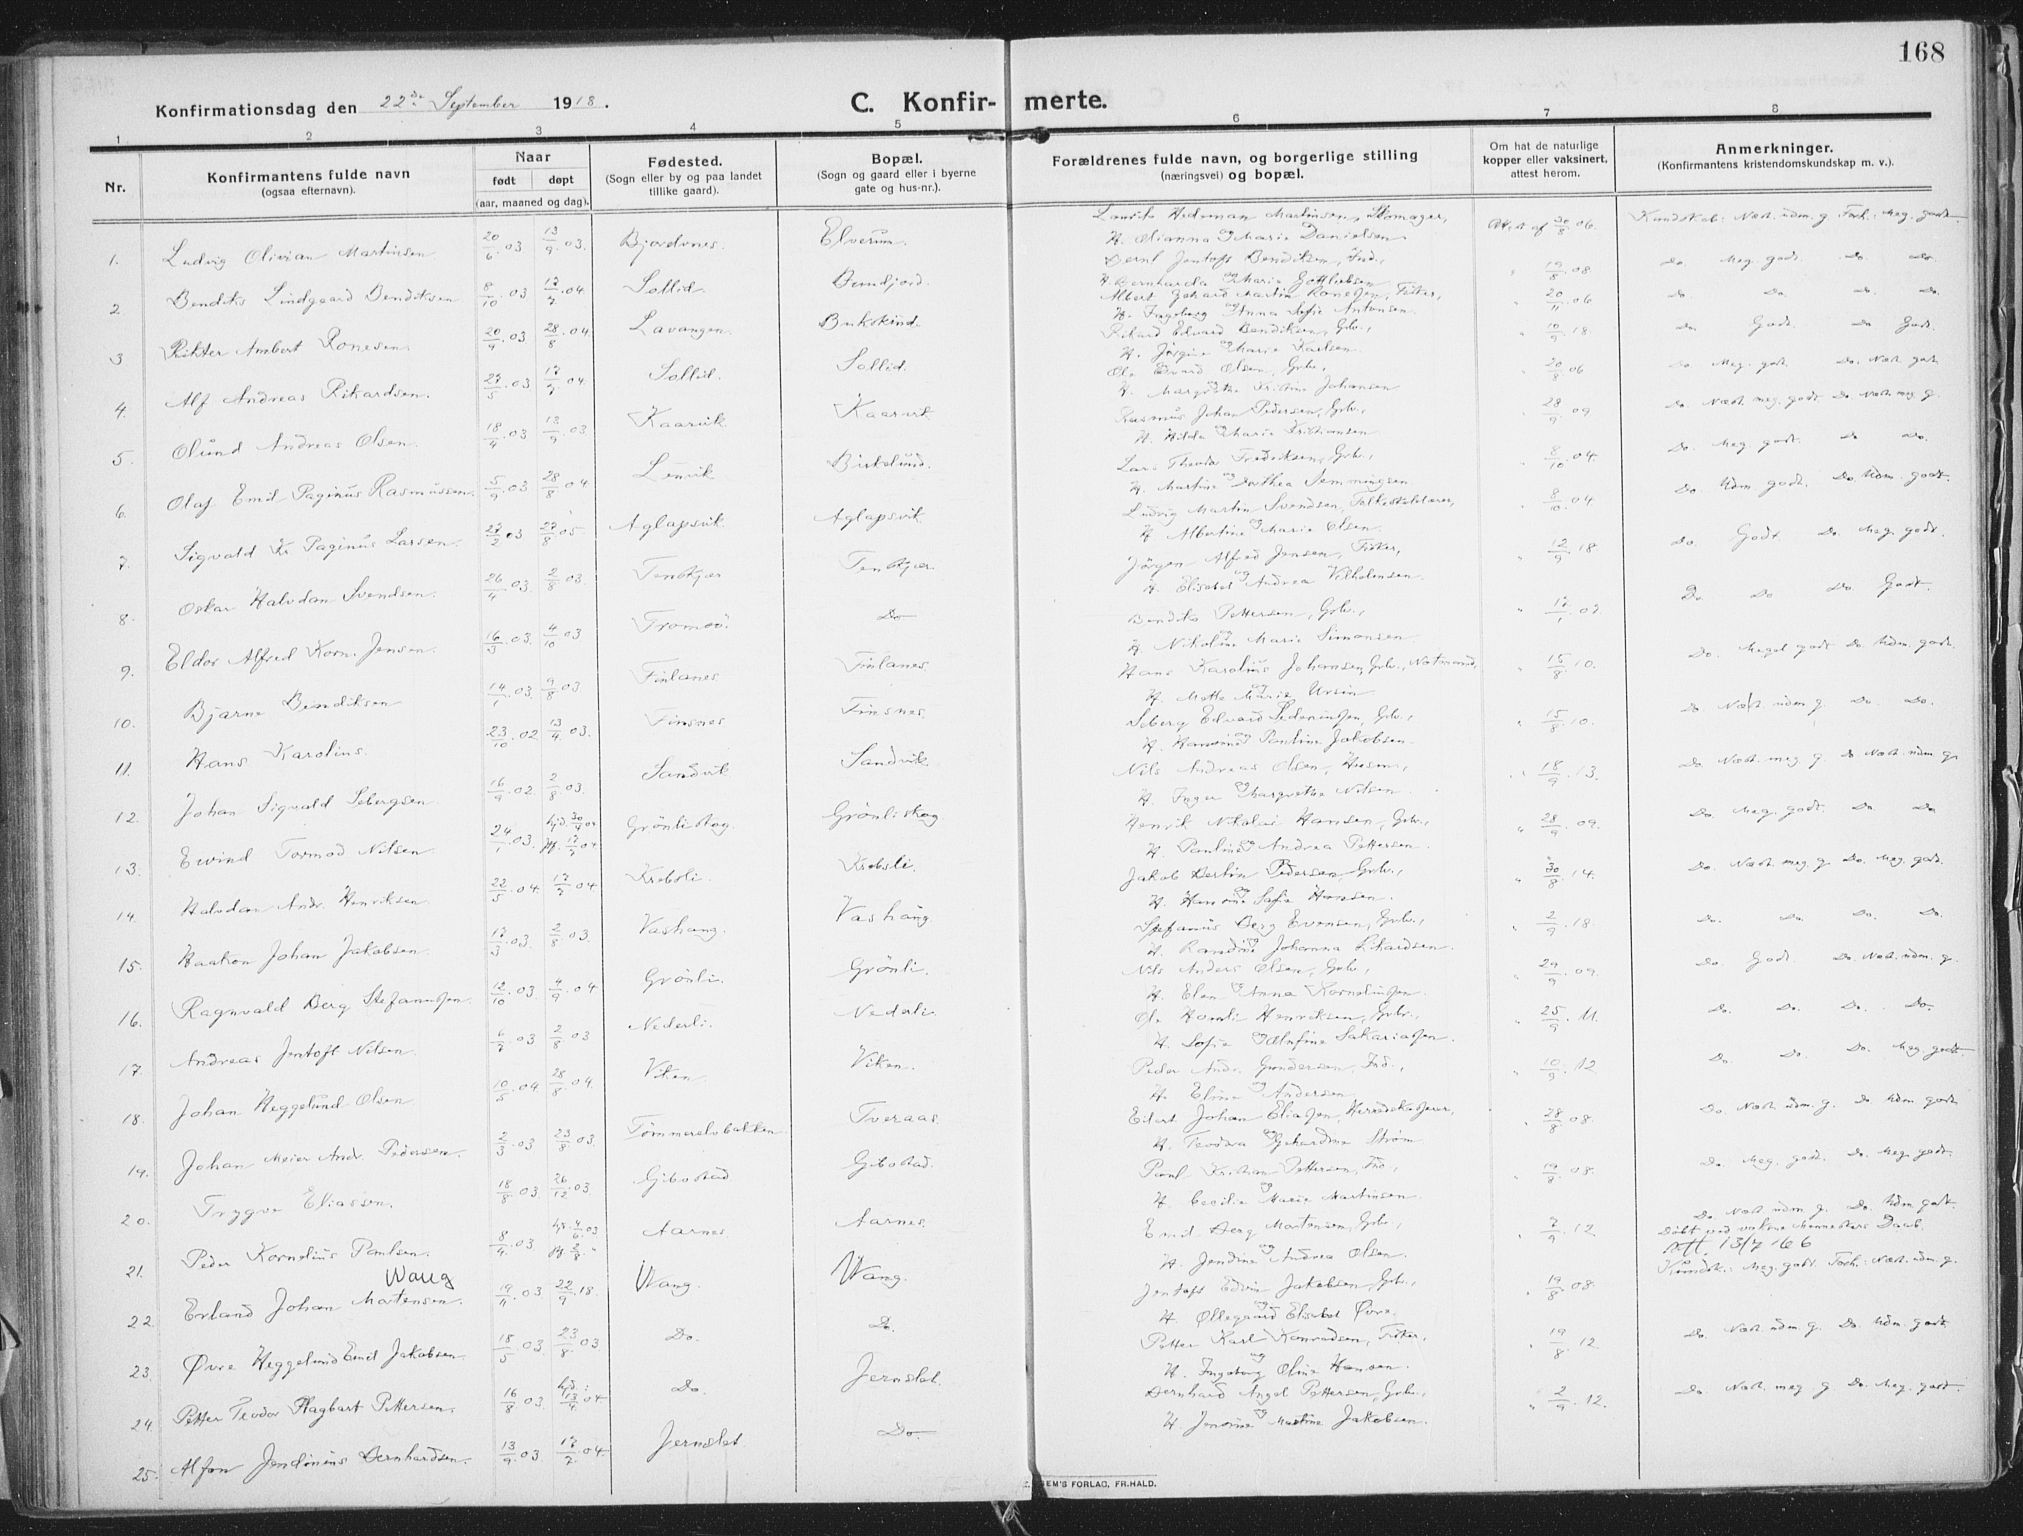 168
Konfirmationsdag den 22de September 1918.
C. Konfirmerte.
1 2 3 4 5 6 7 8
Nr.
Konfirmantens fulde navn
(ogsaa efternavn).
Naar
født døpt
(aar, maaned og dag).
Fødested.
(Sogn eller by og paa landet
tillike gaard).
Bopæl.
(Sogn og gaard eller i byerne
gate og hus-nr.).
Forældrenes fulde navn, og borgerlige stilling
(næringsvei) og bopæl.
Om hat de naturlige
kopper eller vaksinert,
attest herom.
Anmerkninger.
(Konfirmantens kristendomskundskap m. v.).
1. Ludvig Olivian Martinsen 20/6.03 13/9.03. Elverum.
H. Olianna og Marie Danielsen.
2. Bendiks Lindgaard Bendiksen 8/10.03 17/7.04. Sollid.
Bernt Jentoft Bendiksen, Ind.,
3 Rikter Ambert Ronesen 20/9.03 28/8.04. Lavangen. Bukskind.
H. Ingeborg og Anna Sofie Antonsen
20/11.06
4. Alf Andreas Rikardsen. 27/5.03 17/7.04. Sollid. Sollid.
Rikard Edvard Bendiksen, Grbr.,
H. Jørgine og Marie Karlsen.
10/9.18 Do Godt. Do Godt.
5. Olund Andreas Olsen. 18/4.03 13/9.03. Kaarvik Kaarvik
Ole Edvard Olsen, Grbr.,
H. Margrethe Kristine Johansen
20/8.06 Do Meg. godt.
6. Olaf Emil Paginus Rasmussen. 5/9.03 28/8.04 Lenvik Birkelund.
Rasmus Johan Pedersen, Grbr.,
H. Hilda og Marie Kristiansen
28/9.09
7. Sigvald Kr Paginus Larsen. 27/2.03 27/8.05. Aglapsvik Aglapsvik
Lars Theodor Fredriksen, Grbr.,
H. Martine og Dorthea Jemmingsen
8/10.04. Do Meg godt. Do Do.
8. Oskar Halvdan Svendsen. 26/4.03 2/8.03. Tenskjær Tenskjær.
Ludvig Martin Svendsen, Folkeskolelærer,
H. Albertine og Marie Olsen.
8/10.04 Do Udm. godt. Do Udm. godt.
9. Eldor Alfred Korn. Jensen. 16/5.03. 4/10.03 Tromsø. Do
Jörgen Alfred Jensen, Fisker,
H. Elisabet og Andrea Vilhelmsen.
12/9.18. Do. Godt. Do. Meg. godt.
10. Bjarne Bendiksen 14/1.03. 9/8.03 Finlanes Finlanes
Bendiks Pettersen, Grbr.,
H. Nikoline Marie Simonsen
Do. Do Do. Godt.
11. Hans Karolius. 23/10.02 13/4.03. Finsnes Finsnes
Hans Karolius Johansen, Grbr., Notmand,
H. Mette Marie Ursin
15/8.10. Do. Meget godt Do Udm. godt.
12. Johan Sigvald Sebergsen 16/9.02. 2/8.03. Sandvik Sandvik
H. Hansine og Pauline Jakobsen.
15/8.10. Do Næst. udm. g. Do. Do.
13. Ewind Tormod Nilsen 24/1.03. Grönliskog. Grönliskog
Nils Andreas Olsen, Husm.,
H. Inger og Margrethe Nilsen.
18/9.13. Do. Næst. meg. g. Do Næst. udm. g.
14. Halvdan Andr. Henriksen 22/5.04 17/7.04 Krebsli. Krebsli.
Henrik Nikolai Hansen, Grbr.,
H. Pauline og Andrea Pettersen.
28/9.09. Do Meg. godt. Do Do
15. Haakon Johan Jakobsen 17/3.03. 2/8.03. Vashaug. Vashaug.
Jakob Bertin Pedersen Grbr.,
H. Hansine og Sofie Hansen.
30/8.14. Do. Næst. meg. g. Do. Meg. godt.
16. Ragnvald Berg Stefanussen. 12/10.03. 4/9.04 Grönli. Grönli.
Stefanus Berg Evensen, Grbr.,
H. Randine Johanna Rikardsen.
2/9.18. Do. Do. Do. Do.
17. Andreas Jentoft Nilsen 6/7.03 2/8.03 Nederli. Nederli
Nils Anders Olsen, Grbr.,
H. Elen og Anna Korneliussen.
29/9.09. Do. Godt. Do. Næst. udm. g.
18. Johan Heggelund Olsen 10/5.04 28/8.04. Viken Viken.
Ole Hemli Henriksen, Grbr.,
H. Sofie og Alufine Sakariassen.
25/9.11. Do. Do. Do. Do.
19. Johan Meier Andr. Pedersen. 2/3.03 23/8.03. Tömmerelvbakken. Tveraas.
Peder Andr. Gundersen, Ind.,
H. Eline og Andersen
10/9.12 Do. Do. Do. Meg. godt.
20. Trygve Eliassen. 18/8.03 26/12.03 Gibostad Gibostad.
Edert Johan Eliassen, Herredskasserer,
H. Teodora og Gehardine Strøm
28/8.08. Do. Næst. udm. g. Do Udm. godt
21. Peder Kornelius Paulsen. 8/4.03 Aarnes. Aarnes.
Paul Kristian Pettersen, Ind.,
H. Cecilie og Marie Martinsen.
19/8.08. Do. Meg. godt. Do. Meg. godt.
Wang
22. Erland Johan Mortensen. 19/11.03 22/9.18 Wang. Wang.
Emil Berg Mortensen, Grbr.,
H. Jendine og Andrea Olsen.
7/9.12 Do. Næst. udm. g. Do. Udm. godt.
Døbt ved voksne Menneskers Daab.
Att. 13/7 '66
23. Øvre Heggelund Emil Jakobsen. 18/5.03 23/8.03 Do. Do.
Jentoft Edvin Jakobsen, Grbr.,
H. Ollegaard og Elisabet Øvre.
19/8.08. Kundsk.: Meg. godt. Forh.: Næst. udm. g.
24. Petter Teodor Hagbart Pettersen. 16/8.03. Do. Jernslet.
Petter Karl Konradsen, Fisker,
H. Ingeborg og Oline Hansen.
19/8.12 Do. Næst. udm. g. Do. Udm. godt
25. Alfon Jendonius Bernhardsen. 13/9.03 17/7.04 Jernslet Do.
Bernhard Angel Pettersen, Grbr.,
H. Jensine og Martine Jakobsen.
2/9.12. Do. Næst. meg. g. Do. Meg. godt.
SEM'S FORLAG, FR.HALD.